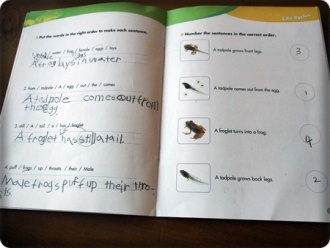 Put the words in the right order to make each sentence.
A frog lays in water
2. from / tadpole / A / egg / out / the / comes
A tadpole comes out from
the egg.
3. still / A / tail / a / has / froglet
A froglet has still a tail.
4. puff / frogs / up / throats / their / Male
Male frogs puff up their thro-
ts.
Life Cycles
Number the sentences in the correct order.
A tadpole grows front legs.
3
A tadpole comes out from the egg.
1
A froglet turns into a frog.
4
A tadpole grows back legs.
2